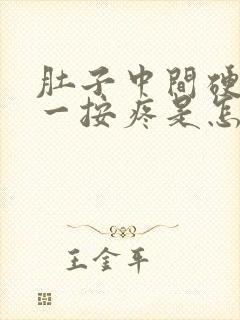 肚子中間硬
一按疼是怎
王金平